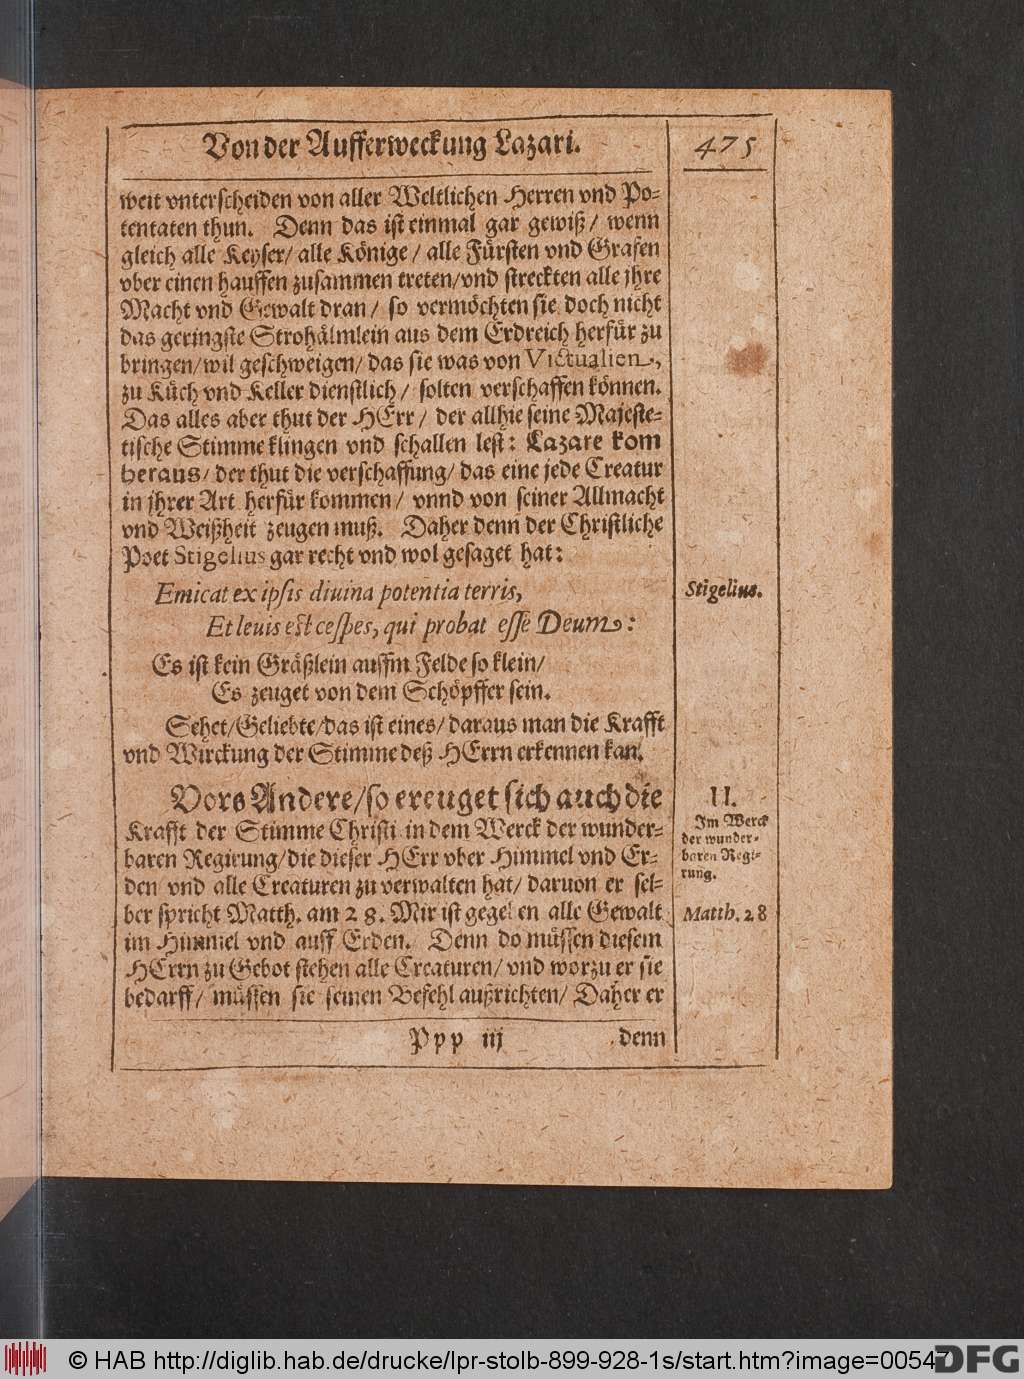 Von der Aufferweckung Lazari.
475
weit vnterscheiden von aller Weltlichen Herren vnd Po-
tentaten thun. Denn das ist einmal gar gewiß/ wenn
gleich alle Keyser/ alle Könige/ alle Fürsten vnd Grafen
vber einen hauffen zusammen treten/ vnd streckten alle jhre
Macht vnd Gewalt dran/ so vermöchten sie doch nicht
das geringste Strohälmlein aus dem Erdreich herfür zu
bringen/ wil geschweigen/ das sie was von Victualien,
zu Küch vnd Keller dienstlich/ solten verschaffen können.
Das alles aber thut der HErr/ der allhie seine Majeste-
tische Stimme klingen vnd schallen lest: Lazare kom
heraus/ der thut die verschaffung/ das eine jede Creatur
in jhrer Art herfür kommen/ vnnd von seiner Allmacht
vnd Weißheit zeugen muß. Daher denn der Christliche
Poet Stigelius gar recht vnd wol gesaget hat:
Emicat ex ipsis diuina potentia terris,
Stigelius.
Et leuis est cespes, qui probat esse Deum:
Es ist kein Gräßlein auffm Felde so klein/
Es zeuget von dem Schöpffer sein.
Sehet/ Geliebte/ das ist eines/ daraus man die Krafft
vnd Wirckung der Stimme deß HErrn erkennen kan.
Vors Andere/ so ereuget sich auch die
II.
Im Werck
der wunder-
baren Regi-
rung.
Krafft der Stimme Christi in dem Werck der wunder-
baren Regirung/ die dieser HErr vber Himmel vnd Er-
den vnd alle Creaturen zu verwalten hat/ daruon er sel-
ber spricht Matth. am 28. Mir ist gegeben alle Gewalt
Matth. 28
im Himmel vnd auff Erden. Denn do müssen diesem
HErrn zu Gebot stehen alle Creaturen/ vnd worzu er sie
bedarff/ müssen sie seinen Befehl außrichten/ Daher er
Ppp iij
denn
© HAB http://diglib.hab.de/drucke/lpr-stolb-899-928-1s/start.htm?image=00547
DFG